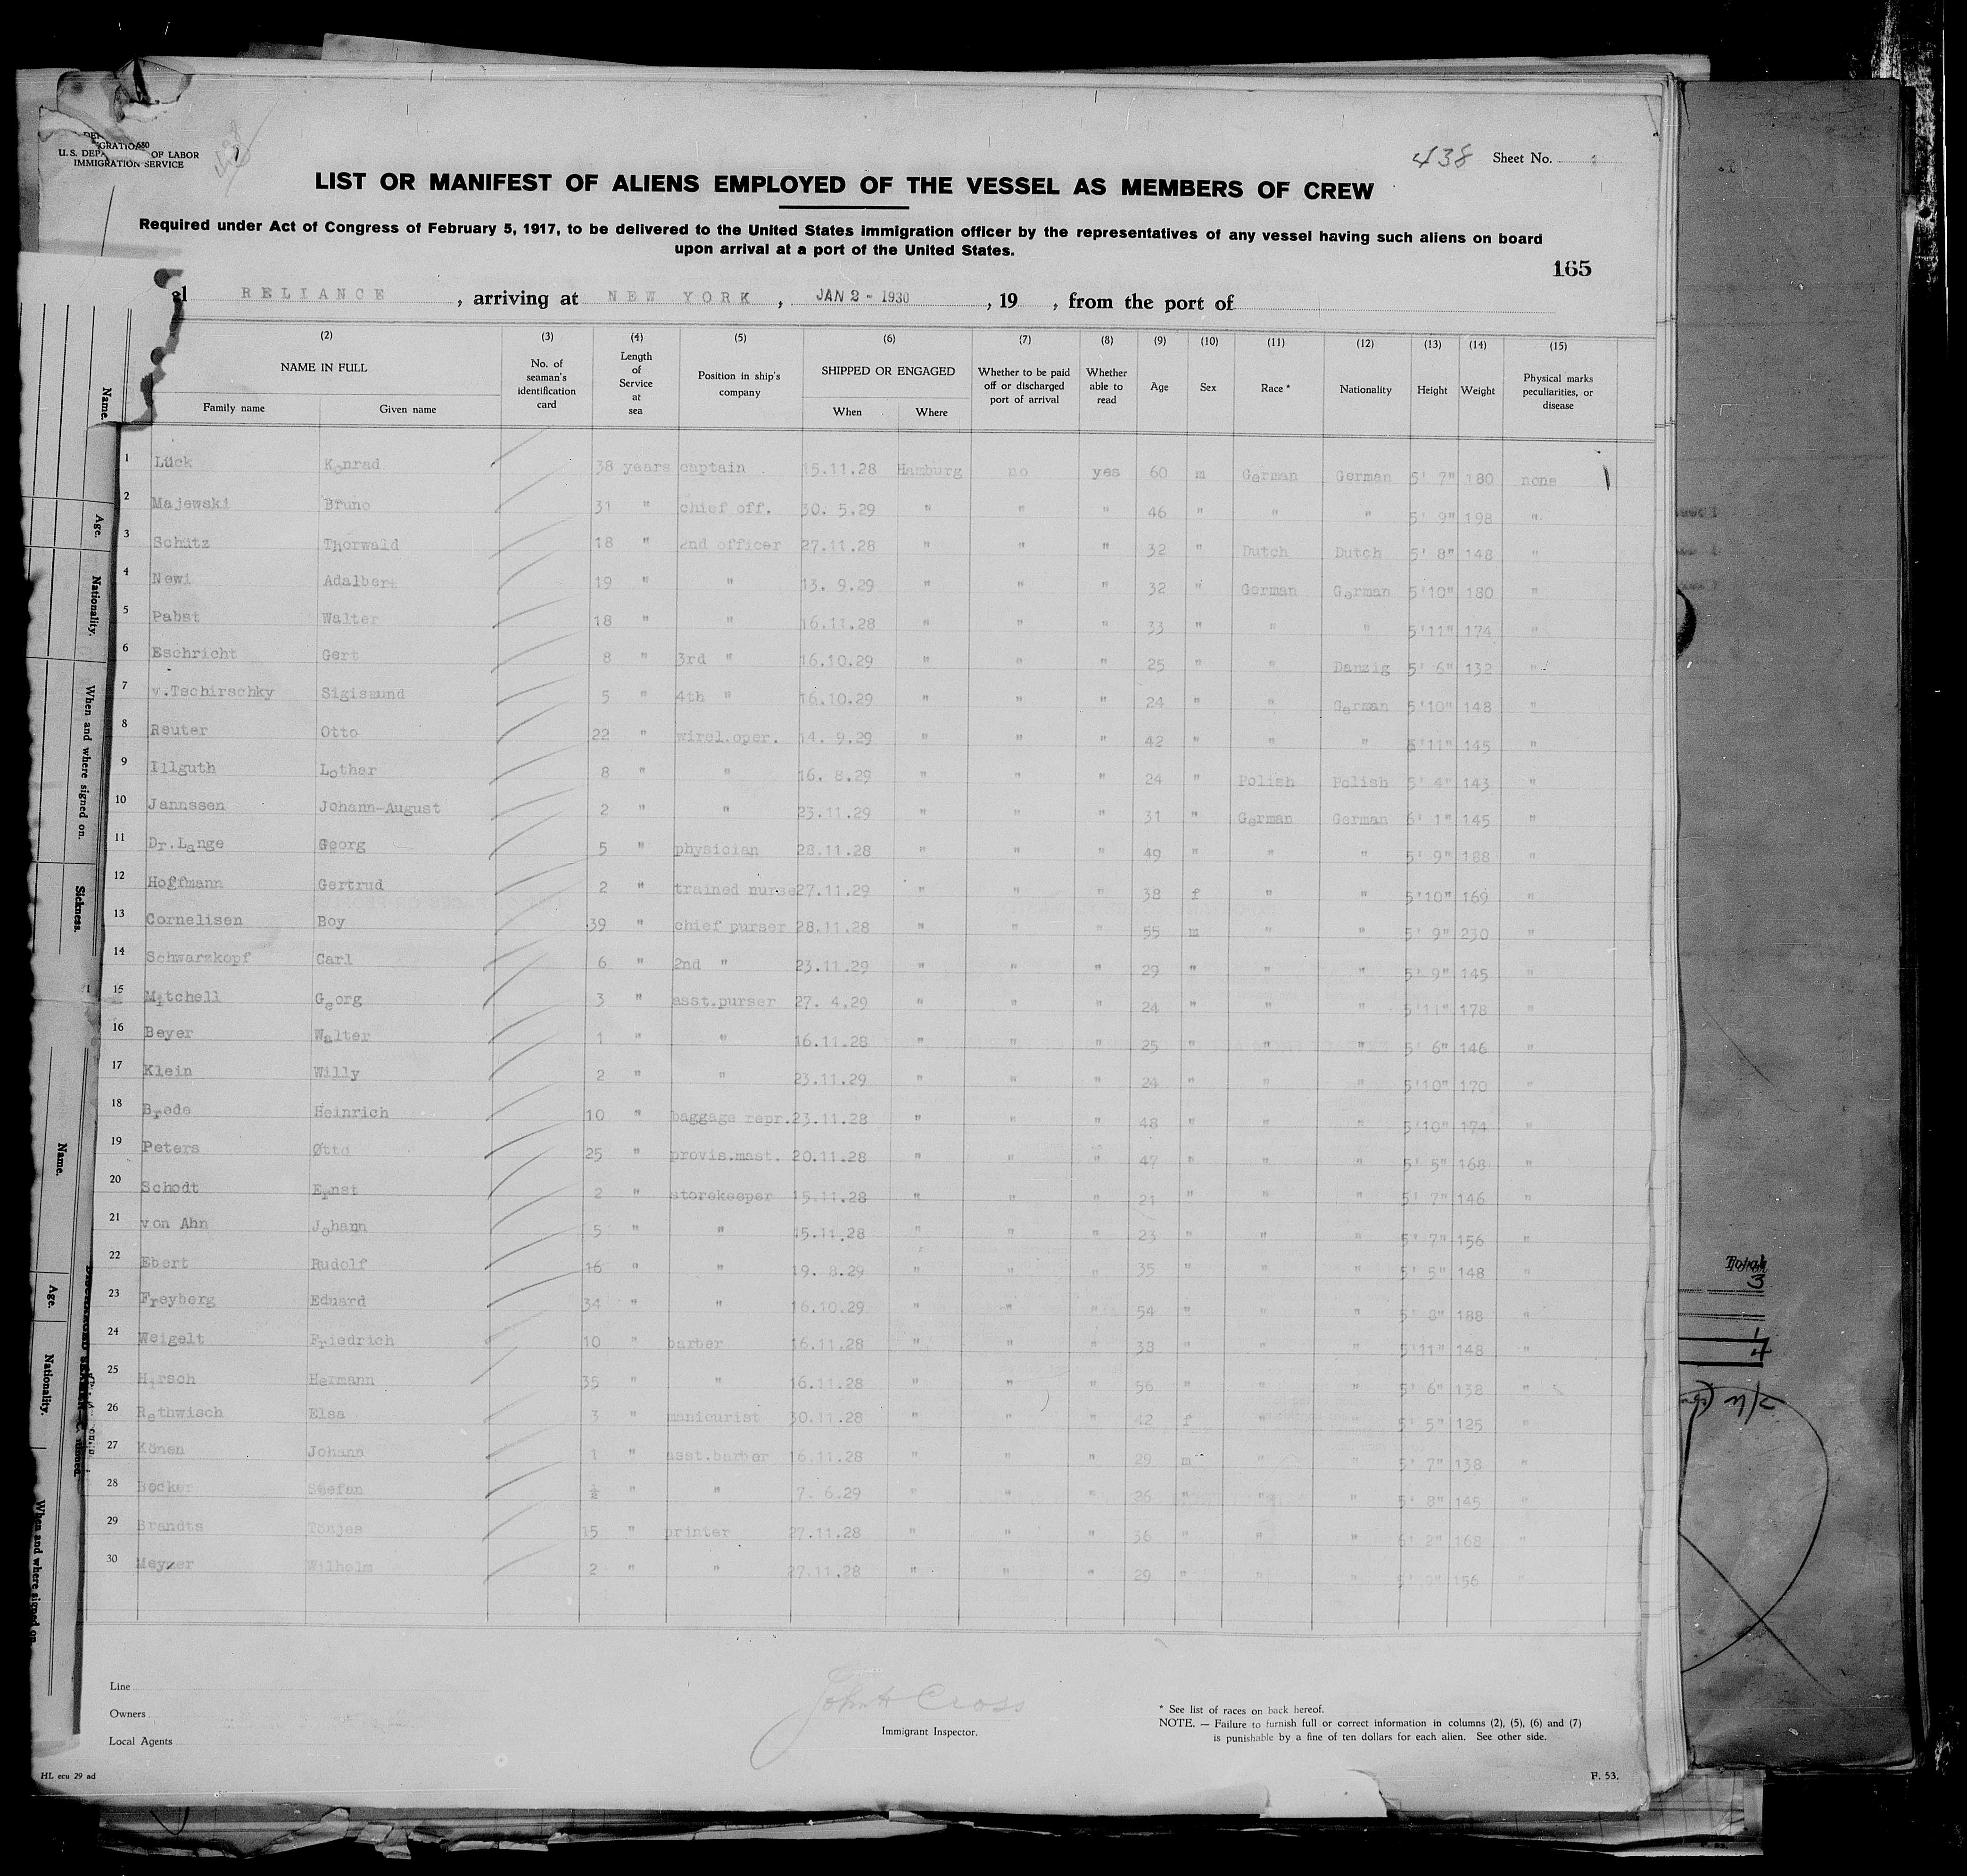 U.S. DEP OF LABOR
IMMIGRATION SERVICE
438 Sheet No. 1
LIST OR MANIFEST OF ALIENS EMPLOYED OF THE VESSEL AS MEMBERS OF CREW
Required under Act of Congress of February 5, 1917, to be delivered to the United States immigration officer by the representatives of any vessel having such aliens on board
upon arrival at a port of the United States.
165
el RELIANCE, arriving at NEW YORK, JAN 2 - 1930, 19 , from the port of
(2) (3) (4) (5) (6) (7) (8) (9) (10) (11) (12) (13) (14) (15)
NAME IN FULL No. of seaman's identification card Length of Service at sea Position in ship's company SHIPPED OR ENGAGED Whether to be paid off or discharged port of arrival Whether able to read Age Sex Race * Nationality Height Weight Physical marks peculiarities, or disease
Family name Given name When Where
1 Lück Konrad 38 years captain 15.11.28 Hamburg no yes 60 m German German 5' 7" 180 none
2 Majewski Bruno 31 " chief off. 30. 5.29 " " " 46 " " " 5' 9" 198 "
3 Schütz Thorwald 18 " 2nd officer 27.11.28 " " " 32 " Dutch Dutch 5' 8" 148 "
4 Newi Adalbert 19 " " 13. 9.29 " " " 32 " German German 5'10" 180 "
5 Pabst Walter 18 " " 16.11.28 " " " 33 " " " 5'11" 174 "
6 Eschricht Gert 8 " 3rd " 16.10.29 " " " 25 " " Danzig 5' 6" 132 "
7 v.Tschirschky Sigismund 5 " 4th " 16.10.29 " " " 24 " " German 5'10" 148 "
8 Reuter Otto 22 " wirel.oper. 14. 9.29 " " " 42 " " " 5'11" 145 "
9 Illguth Lothar 8 " " 16. 8.29 " " " 24 " Polish Polish 5' 4" 143 "
10 Jannssen Johann-August 2 " " 23.11.29 " " " 31 " German German 6' 1" 145 "
11 Dr.Lange Georg 5 " physician 28.11.28 " " " 49 " " " 5' 9" 188 "
12 Hoffmann Gertrud 2 " trained nurse 27.11.29 " " " 38 f " " 5'10" 169 "
13 Cornelisen Boy 39 " chief purser 28.11.28 " " " 55 m " " 5' 9" 230 "
14 Schwarzkopf Carl 6 " 2nd " 23.11.29 " " " 29 " " " 5' 9" 145 "
15 Mitchell Georg 3 " asst.purser 27. 4.29 " " " 24 " " " 5'11" 178 "
16 Beyer Walter 1 " " 16.11.28 " " " 25 " " " 5' 6" 146 "
17 Klein Willy 2 " " 23.11.29 " " " 24 " " " 5'10" 170 "
18 Brede Heinrich 10 " baggage repr. 23.11.28 " " " 48 " " " 5'10" 174 "
19 Peters Otto 25 " provis.mast. 20.11.28 " " " 47 " " " 5' 5" 168 "
20 Schodt Ernst 2 " storekeeper 15.11.28 " " " 21 " " " 5' 7" 146 "
21 von Ahn Johann 5 " " 15.11.28 " " " 23 " " " 5' 7" 156 "
22 Ebert Rudolf 16 " " 19. 8.29 " " " 35 " " " 5' 5" 148 "
23 Freyberg Eduard 34 " " 16.10.29 " " " 54 " " " 5' 8" 188 "
24 Weigelt Friedrich 10 " barber 16.11.28 " " " 38 " " " 5'11" 148 "
25 Hirsch Hermann 35 " " 16.11.28 " " " 56 " " " 5' 6" 138 "
26 Rethwisch Elsa 3 " manicurist 30.11.28 " " " 42 f " " 5' 5" 125 "
27 Könen Johann 1 " asst.barber 16.11.28 " " " 29 m " " 5' 7" 138 "
28 Becker Stefan ½ " " 7. 6.29 " " " 26 " " " 5' 8" 145 "
29 Brandts Tönjes 15 " printer 27.11.28 " " " 36 " " " 6' 2" 168 "
30 Meyer Wilhelm 2 " " 27.11.28 " " " 29 " " " 5' 156 "
Line
Owners
Local Agents
John H Cross
Immigrant Inspector.
* See list of races on back hereof.
NOTE. — Failure to furnish full or correct information in columns (2), (5), (6) and (7)
is punishable by a fine of ten dollars for each alien. See other side.
HL ecu 29 ad
F. 53.
Name.
Age.
Nationality.
When and where signed on.
Sickness.
Name.
Age.
Nationality.
When and where signed on.
Total
3